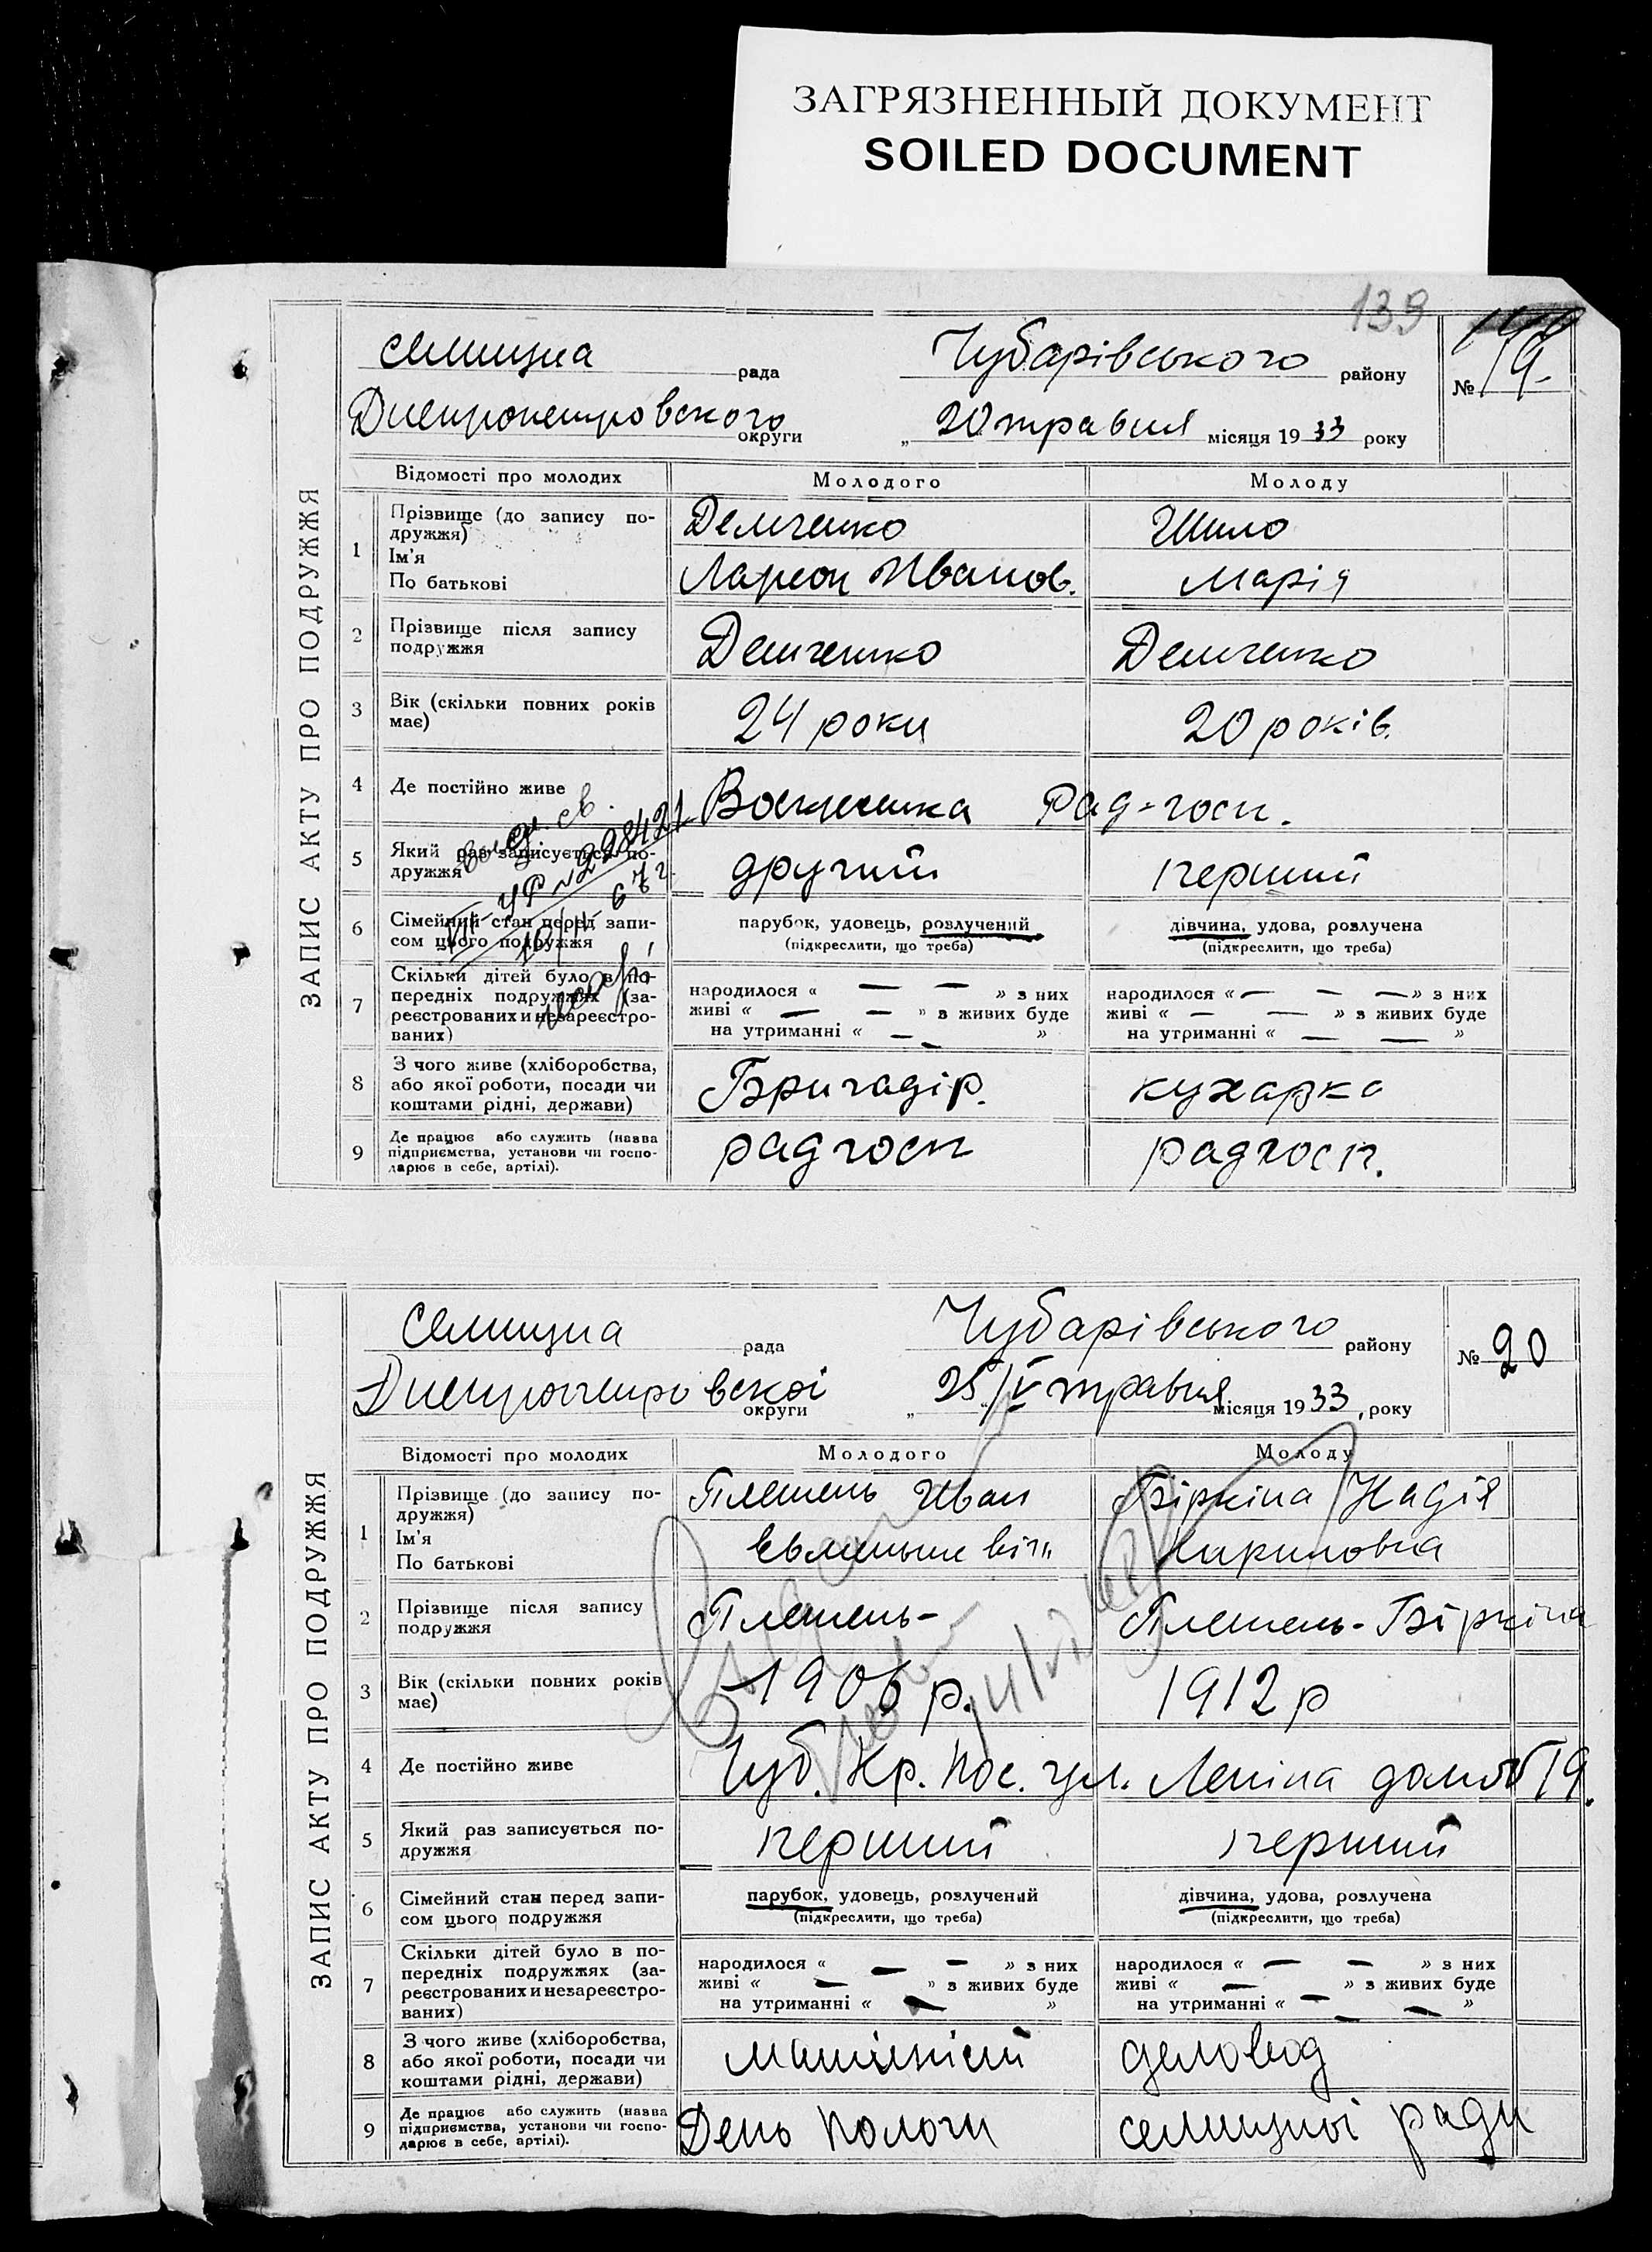 ЗАГРЯЗНЕННЫЙ ДОКУМЕНТ
SOILED DOCUMENT
139
ЗАПИС АКТУ ПРО ПОДРУЖЖЯ
селищна рада Чубарівського району № 19.
Днепропетровского округи „ 20 травня місяця 1933 року
Відомості про молодих Молодого Молоду
1 Прізвище (до запису по-
дружжя)
Ім'я
По батькові
Демченко Шило
Ларион Иванов. Марія
2 Прізвище після запису
подружжя
Демченко Демченко
3 Вік (скільки повних років
має)
24 роки 20 років.
4 Де постійно живе Воскресенка Рад-госп.
5 Який раз записується по-
дружжя
другий перший
УР № 228421
6 Сімейний стан перед запи-
сом цього подружжя
парубок, удовець, розлучений
(підкреслити, що треба)
дівчина, удова, розлучена
(підкреслити, що треба)
7 Скільки дітей було в по-
передніх подружжях (за-
реєстрованих и незареєстро-
ваних)
народилося « — — » з них
живі « — — » з живих буде
на утриманні « — — »
народилося « — — — » з них
живі « — — » з живих буде
на утриманні « — — »
8 З чого живе (хліборобства,
або якої роботи, посади чи
коштами рідні, держави)
Бригадір. кухарка
9 Де працює або служить (назва
підприємства, установи чи госпо-
дарює в себе, артілі).
радгосп радгосп.
ЗАПИС АКТУ ПРО ПОДРУЖЖЯ
Селищна рада Чубарівського району № 20
Днепропетровскоі округи „ 25/V травня місяця 1933 року
Відомості про молодих Молодого Молоду
1 Прізвище (до запису по-
дружжя)
Ім'я
По батькові
Плешень Иван Біркіна Надія
Кириловна
2 Прізвище після запису
подружжя
Плешень- Плешень-Біркіна
3 Вік (скільки повних років
має)
1906 р. 1912 р
4 Де постійно живе Чуб. Кр. Пос. ул. Леніна дом № 19.
5 Який раз записується по-
дружжя
перший перший
6 Сімейний стан перед запи-
сом цього подружжя
парубок, удовець, розлучений
(підкреслити, що треба)
дівчина, удова, розлучена
(підкреслити, що треба)
7 Скільки дітей було в по-
передніх подружжях (за-
реєстрованих и незареєстро-
ваних)
народилося « — — » з них
живі « — » з живих буде
на утриманні « — »
народилося « — — » з них
живі « — » з живих буде
на утриманні « — — »
8 З чого живе (хліборобства,
або якої роботи, посади чи
коштами рідні, держави)
машиніст деловод
9 Де працює або служить (назва
підприємства, установи чи госпо-
дарює в себе, артілі).
Депо Пологи селищноі ради